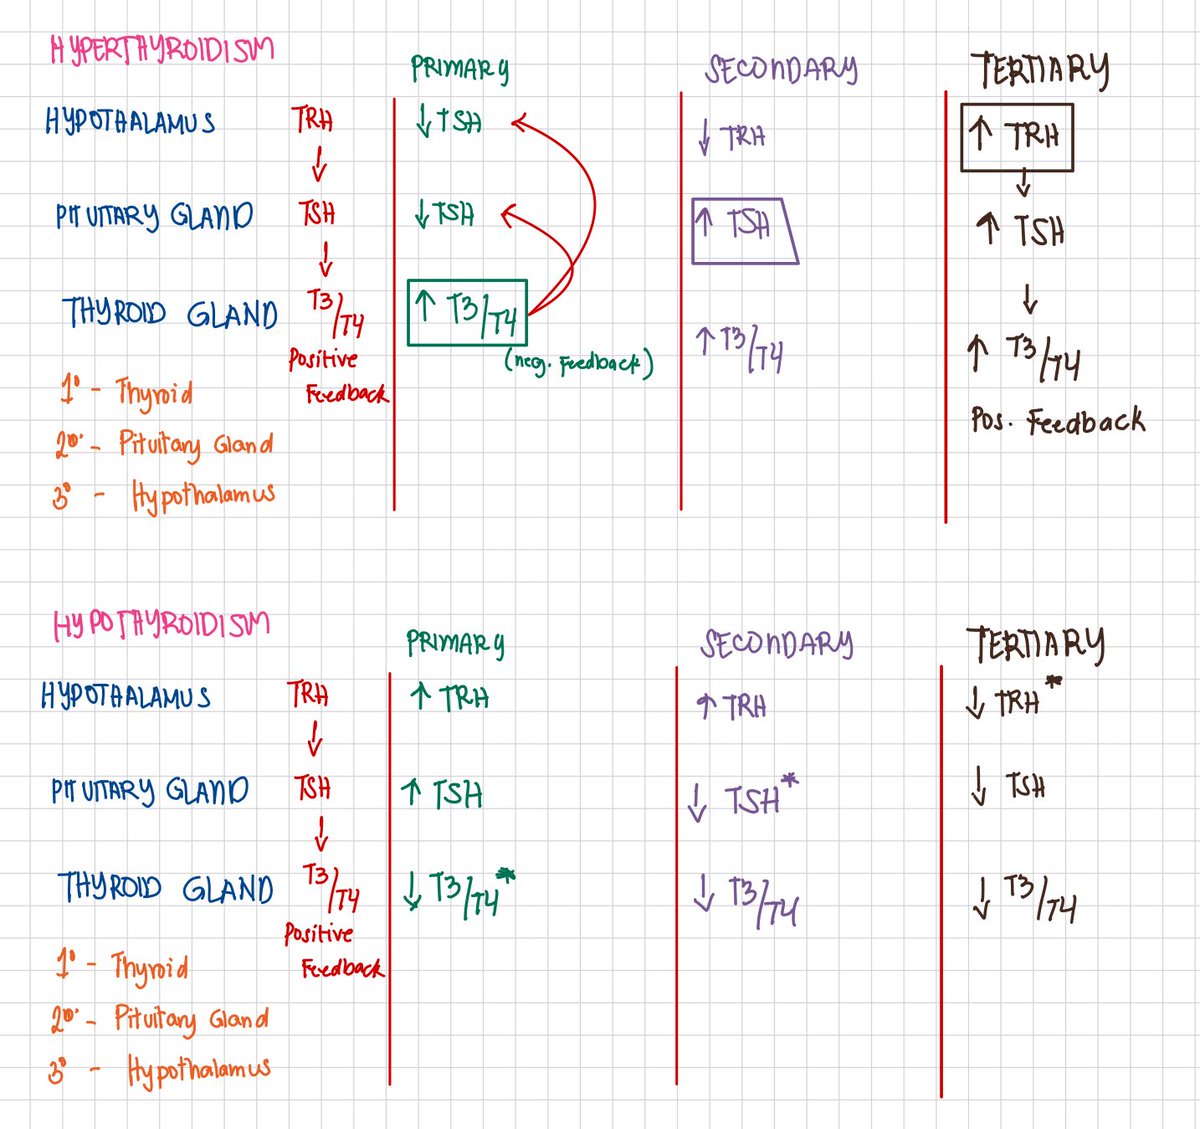 HYPERTHYROIDISM
PRIMARY
SECONDARY
TERTIARY
HYPOTHALAMUS TRH ↓ TSH ↓ TRH ↑ TRH
↓ ↓
PITUITARY GLAND TSH ↓ TSH ↑ TSH ↑ TSH
↓ ↓
THYROID GLAND T3/T4 ↑ T3/T4 ↑ T3/T4 ↑ T3/T4
Positive (neg. Feedback)
1° - Thyroid Feedback Pos. Feedback
2°· - Pituitary Gland
3° - Hypothalamus
HYPOTHYROIDISM
PRIMARY
SECONDARY
TERTIARY
HYPOTHALAMUS TRH ↑ TRH ↑ TRH ↓ TRH*
↓
PITUITARY GLAND TSH ↑ TSH ↓ TSH* ↓ TSH
↓
THYROID GLAND T3/T4 ↓ T3/T4* ↓ T3/T4 ↓ T3/T4
Positive
1° - Thyroid Feedback
2°· - Pituitary Gland
3° - Hypothalamus